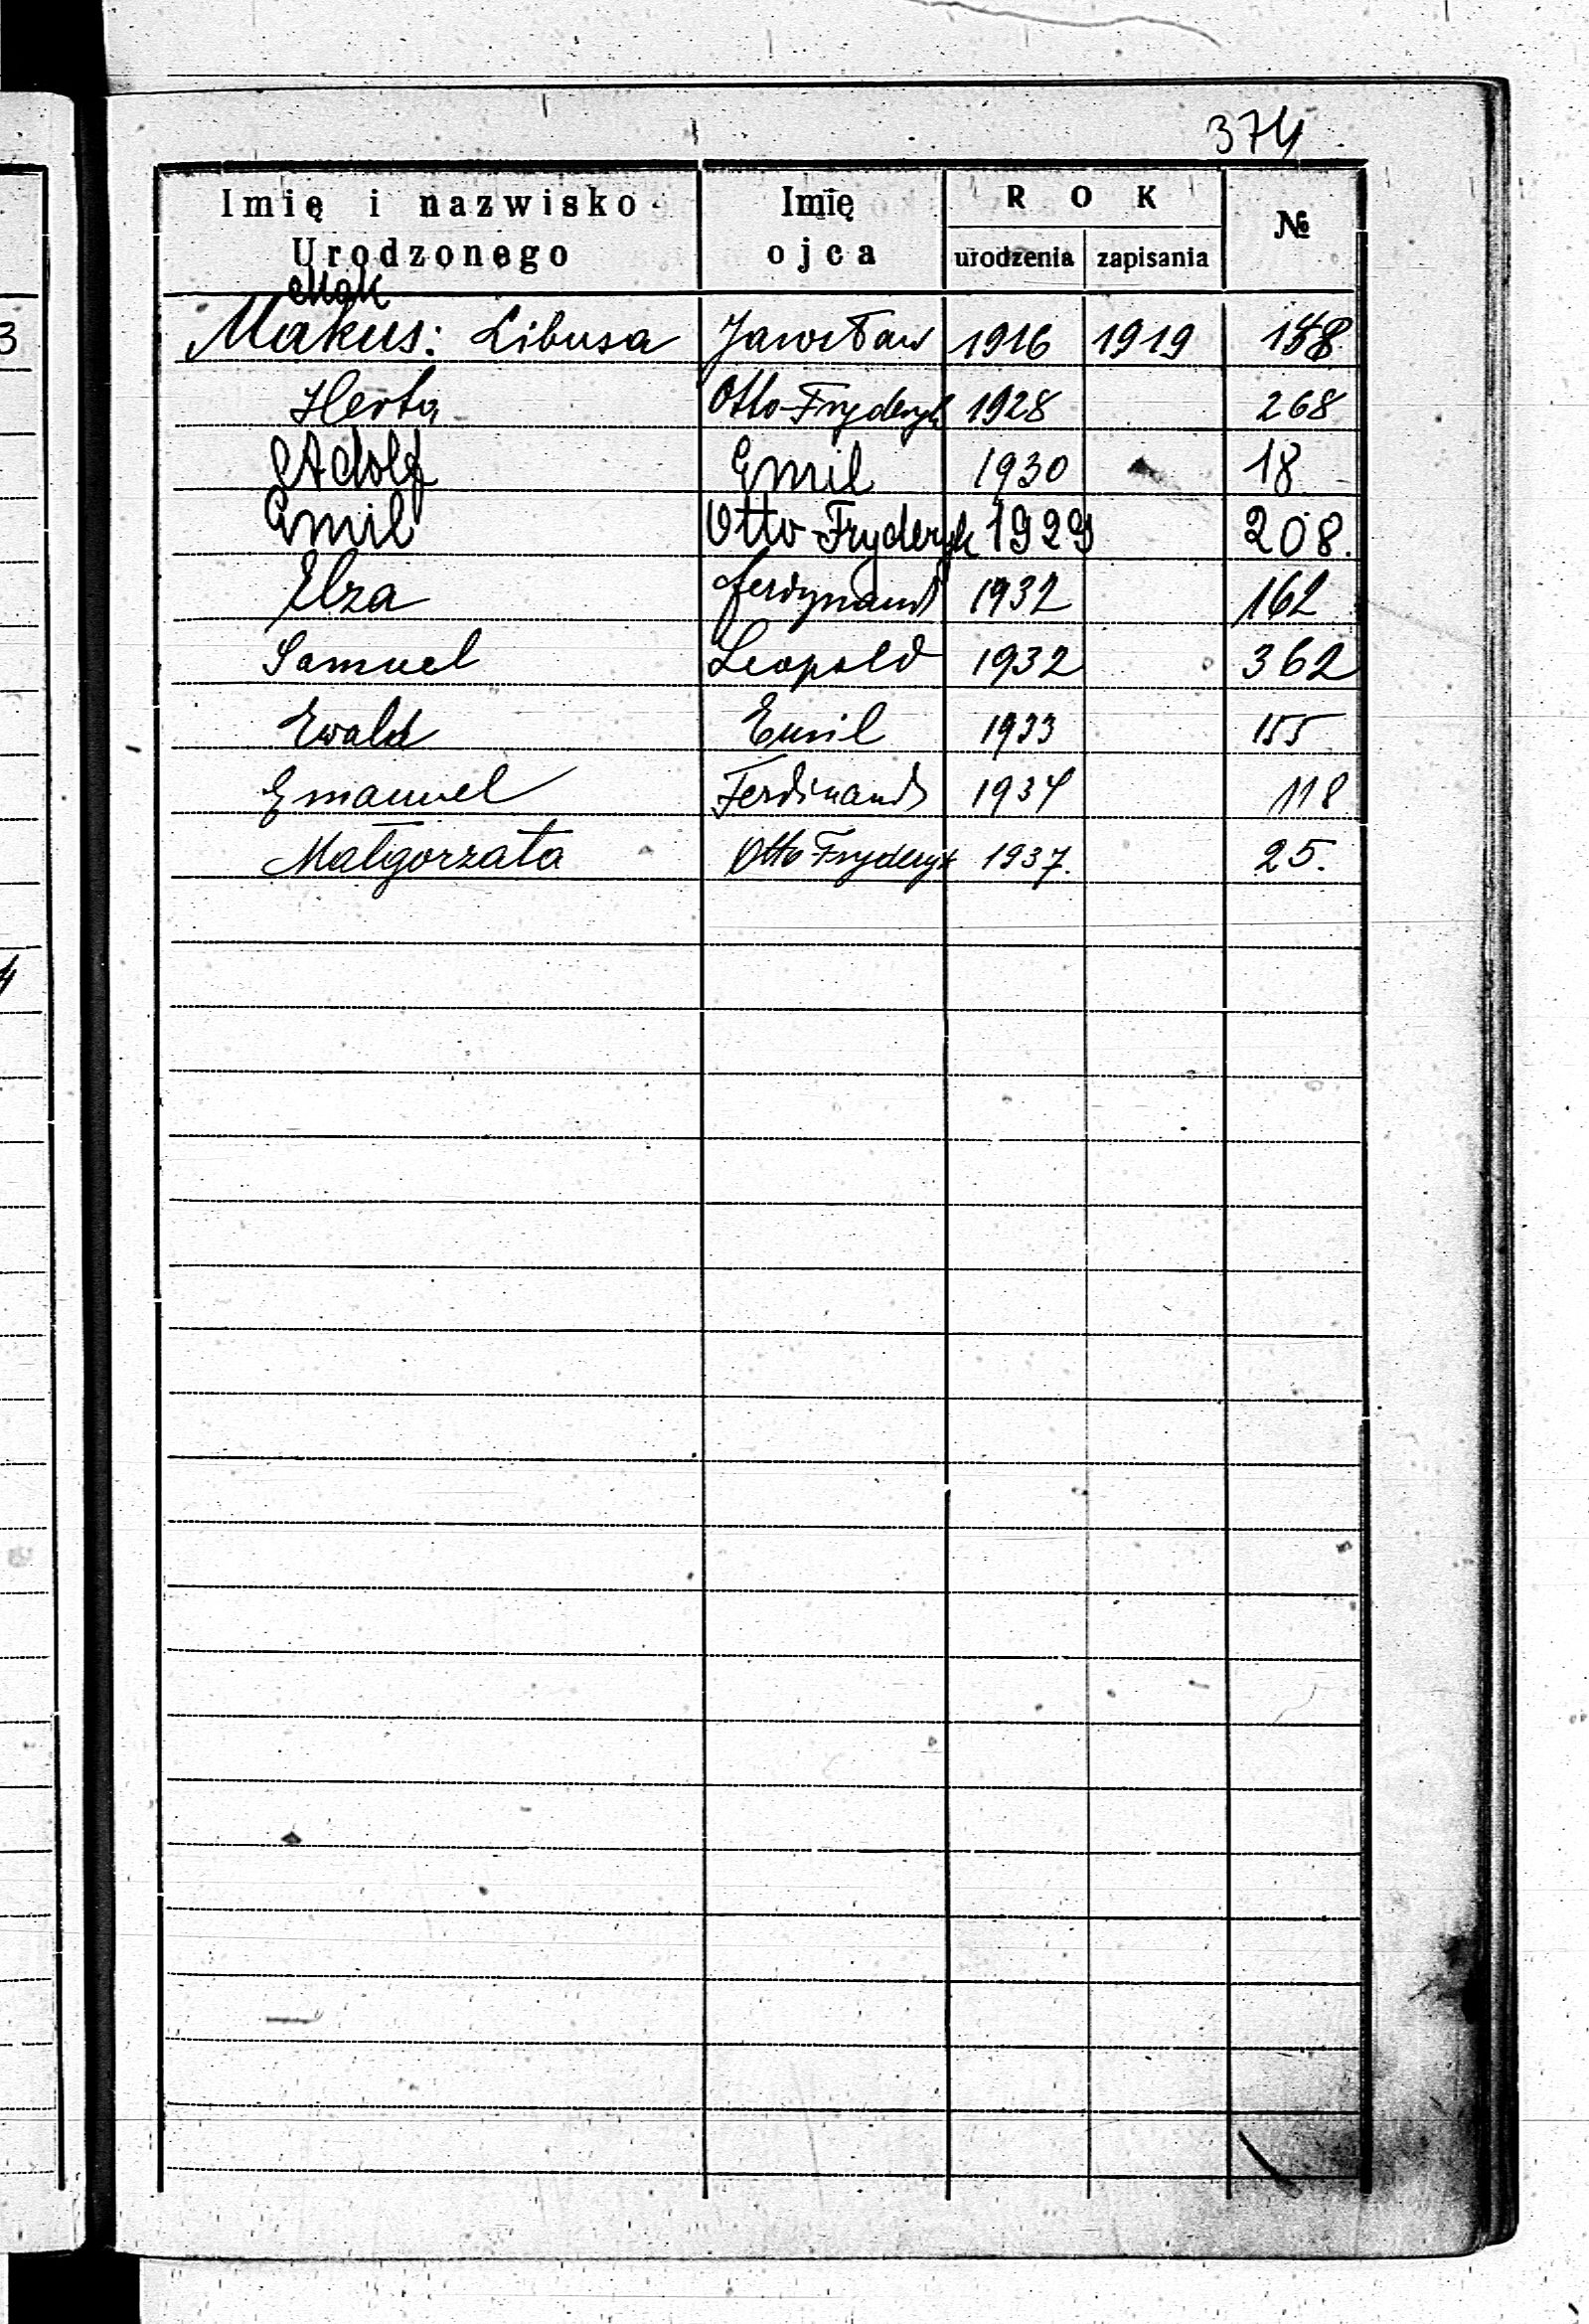 374
Imię i nazwisko Urodzonego Imię ojca ROK urodzenia zapisania №
Mak
Makus: Libusa Jarosław 1916 1919
Herta Otto-Fryderyk 1928 268
Adolf Emil 1930 18
Emil Otto-Fryderyk 1929 208.
Elza Ferdynand 1932 162
Samuel Leopold 1932 362
Ewald Emil 1933 155
Emanuel Ferdinand 1934 118
Małgorzata Otto Fryderyk 1937. 25.
3
4